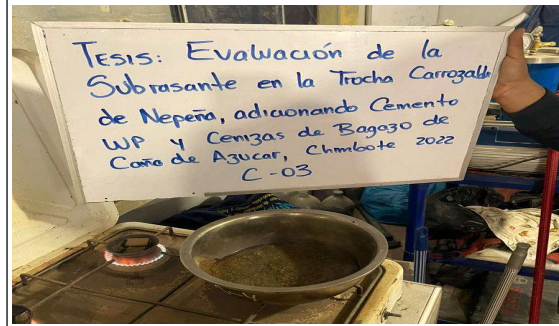 TESIS: Evaluación de la
Subrasante en la Trocha Carrozable
de Nepeña, adicionando Cemento
WP y Cenizas de Bagazo de
Caña de Azucar, Chimbote 2022
C-03